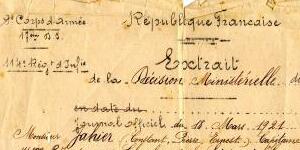 République Française
9e Corps d'Armée
17me D.I.
Extrait
114e Régt d'Infie
de la Décision Ministérielle du
en date du
Journal Officiel du 18 Mars 1921
Monsieur Jahier (Constant, Pierre, Ernest) Capitaine